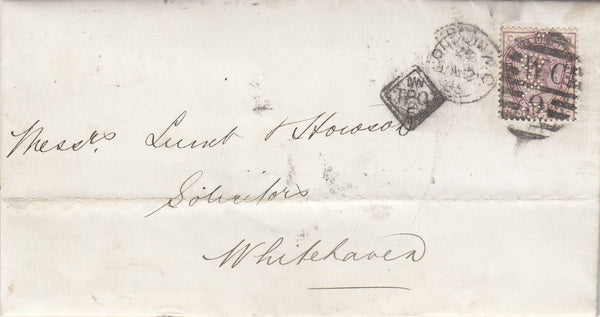 W.C
9
NW
TPO
Messrs. Lumb & Howson
Solicitors
Whitehaven